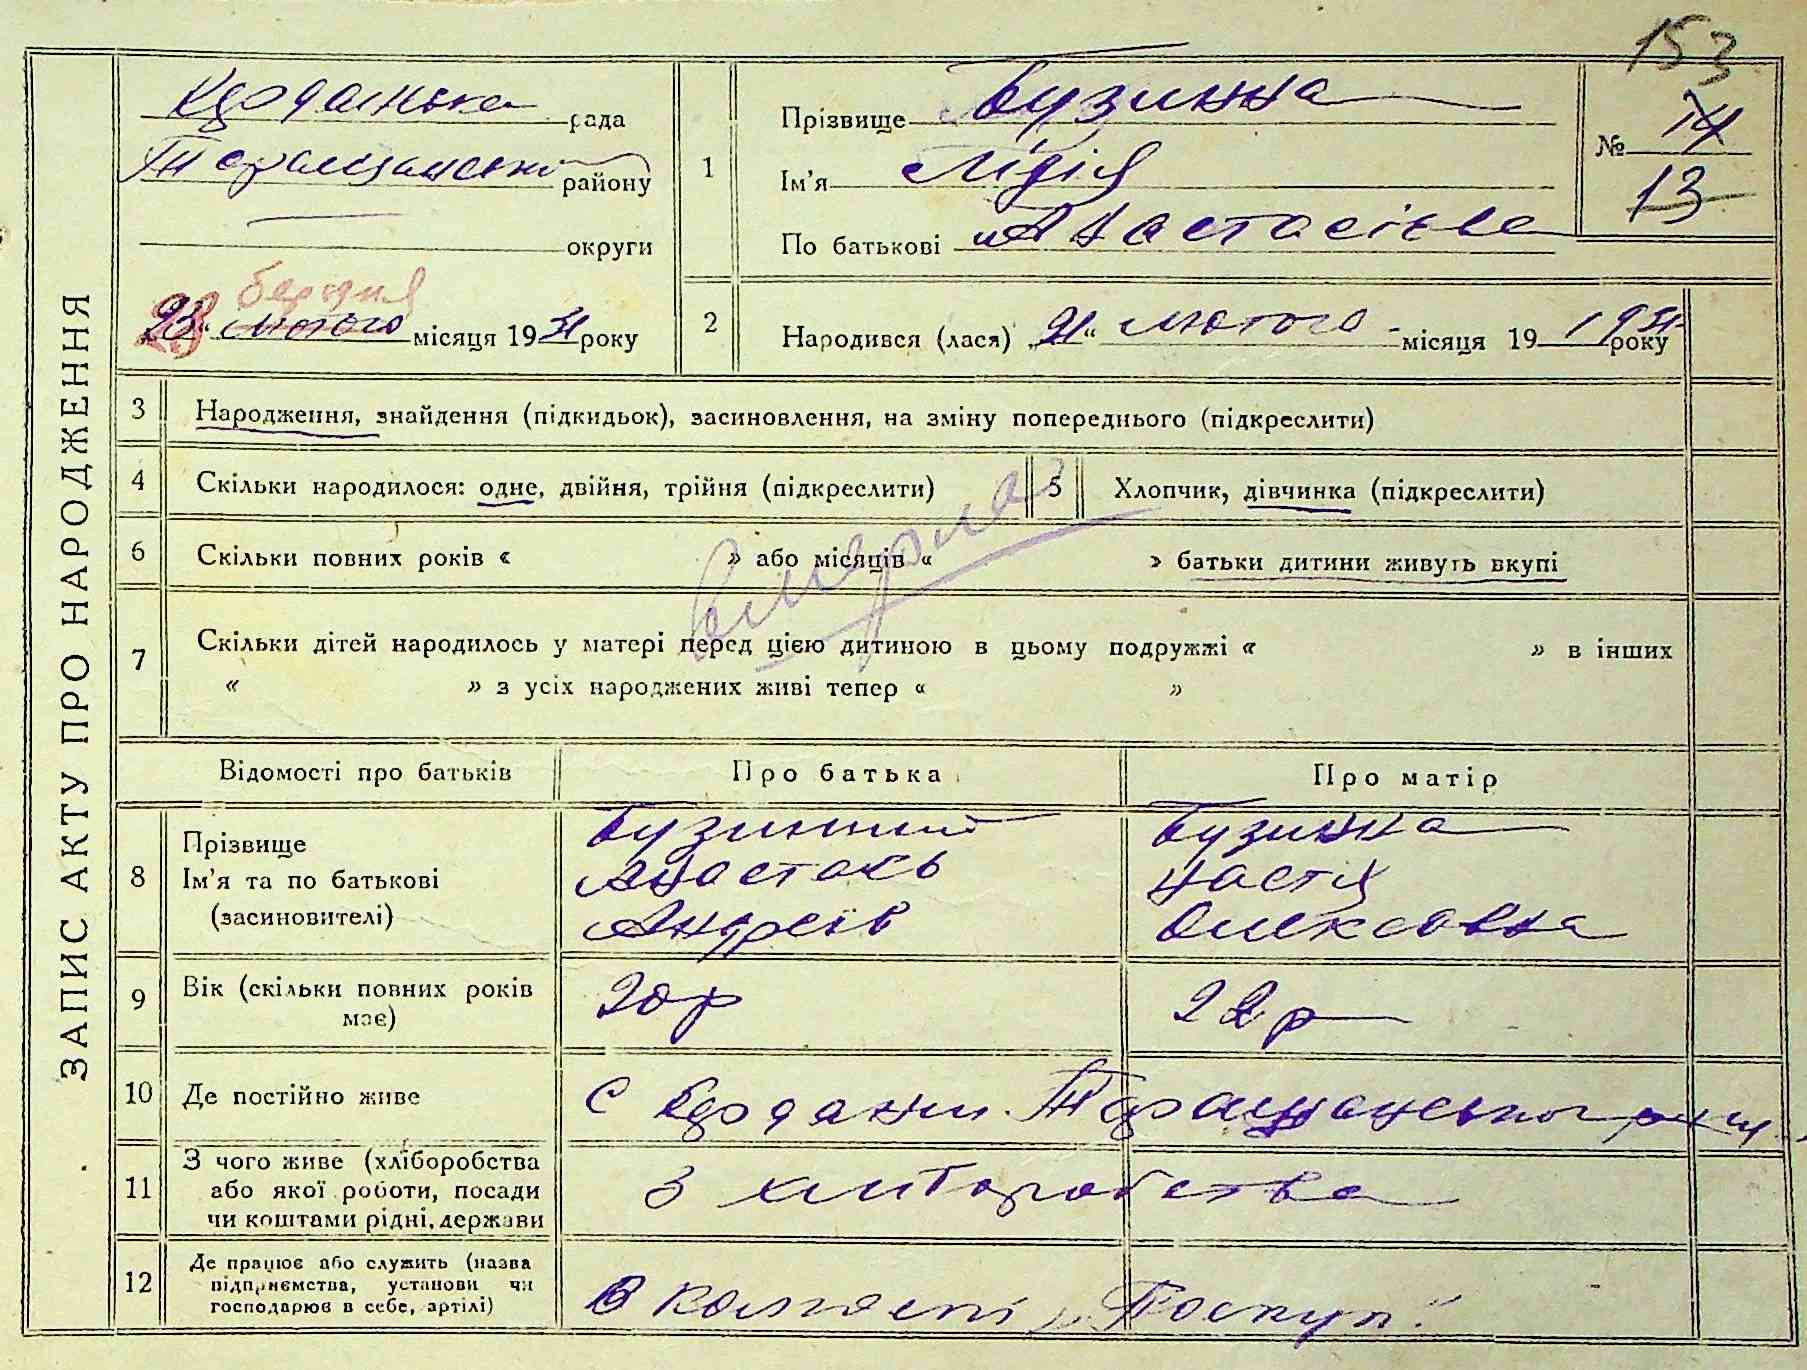 153
ЗАПИС АКТУ ПРО НАРОДЖЕННЯ
Крдданська рада
Таращанськ району
округи
23 лютого березня місяця 1931 року
1 Прізвище Бузинна
Ім'я Лідія
По батькові Анастасівна
№ 14
13
2 Народився (лася) „21" лютого місяця 19 1931 року
3 Народження, знайдення (підкидьок), засиновлення, на зміну попереднього (підкреслити)
4 Скільки народилося: одне, двійня, трійня (підкреслити) 5 Хлопчик, дівчинка (підкреслити)
вмерла
6 Скільки повних років « » або місяців « » батьки дитини живуть вкупі
7 Скільки дітей народилось у матері перед цією дитиною в цьому подружжі « » в інших
« » з усіх народжених живі тепер « »
Відомості про батьків Про батька Про матір
8 Прізвище Бузинний Бузинна
Ім'я та по батькові Анастась Настя
(засиновителі) Андреїв Олексовна
9 Вік (скільки повних років має) 20 р 22 р
10 Де постійно живе с Таращанського
11 З чого живе (хліборобства
або якої роботи, посади
чи коштами рідні, держави З хліборобства
12 Де працює або служить (назва
підприємства, установи чи
господарює в себе, артілі) В колгоспі „Поступ"